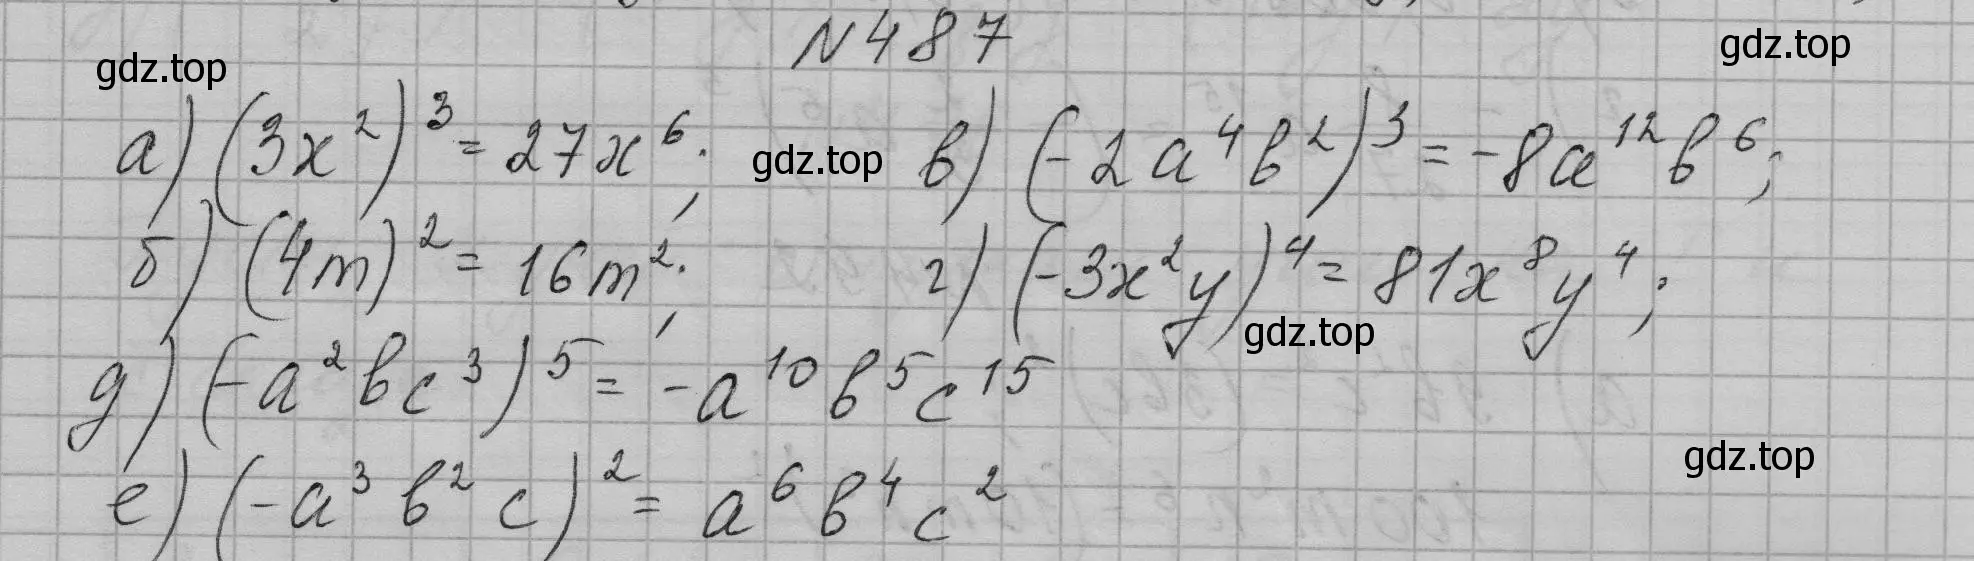 №487
gdz.top gdz.top
а) (3x²)³ = 27x⁶; gdz.top в) (-2a⁴b²)³ = -8a¹²b⁶;
б) (4m)² = 16m²; г) (-3x²y)⁴ = 81x⁸y⁴;
gdz.top
д) (-a²bc³)⁵ = -a¹⁰b⁵c¹⁵
gdz.top
е) (-a³b²c)² = a⁶b⁴c²